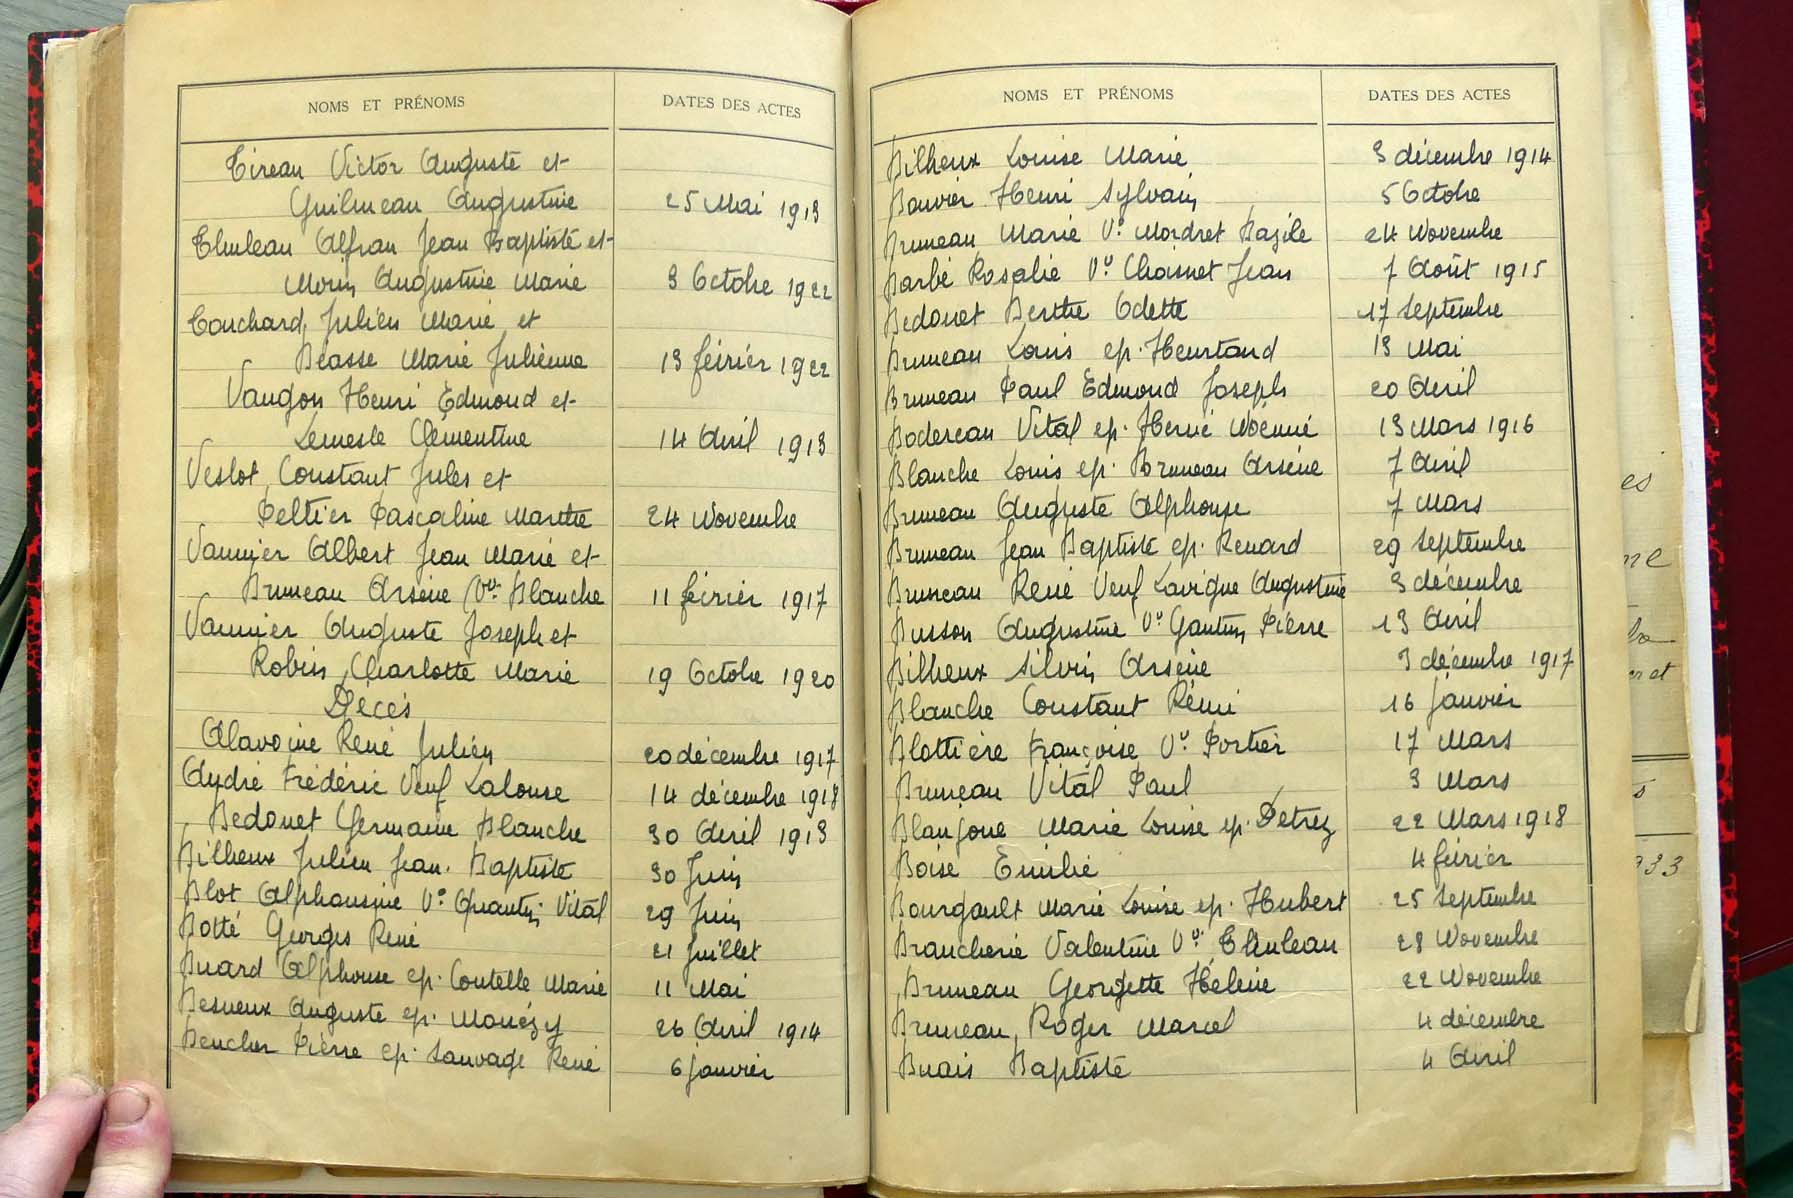 NOMS ET PRÉNOMS DATES DES ACTES
Tireau Victor Auguste et
Guilmeau Augustine 25 Mai 1913
Thuleau Alfran Jean Baptiste et
Morin Augustine Marie 3 Octobre 1922
Couchard Julien Marie et
Béasse Marie Julienne 13 février 1922
Vaugon Henri Edmond et
Lemesle Clémentine 14 Avril 1913
Veslot Constant Jules et
Peltier Pascaline Marthe 24 Novembre
Vannier Albert Jean Marie et
Bruneau Arsène Vve Blanche 11 février 1917
Vannier Auguste Joseph et
Robin Charlotte Marie 19 Octobre 1920
Décès
Alavoine René Julien 20 décembre 1917
Aydré Frédéric Veuf Lalouse 14 décembre 1918
Bedouet Germaine Blanche 30 Avril 1913
Bilheux Julien Jean Baptiste 30 Juin
Blot Alphonsine Ve Quantin Vital 29 Juin
Botté Georges René 21 Juillet
Buard Alphonse ep. Coutelle Marie 11 Mai
Besneux Auguste ep. Mouézy 26 Avril 1914
Beucher Pierre ep. Sauvage René 6 janvier
NOMS ET PRÉNOMS DATES DES ACTES
Bilheux Louise Marie 3 décembre 1914
Bouvier Henri Sylvain 5 Octobre
Bruneau Marie Ve Mordret Bazile 24 Novembre
Barbé Rosalie Vve Choisnet Jean 7 Août 1915
Bedouet Berthe Odette 17 Septembre
Bruneau Louis ep. Heurtaud 13 Mai
Bruneau Paul Edmond Joseph 20 Avril
Bodereau Vital ep. Hervé Noémie 13 Mars 1916
Blanche Louis ep. Bruneau Arsène 7 Avril
Bruneau Auguste Alphonse 7 Mars
Bruneau Jean Baptiste ep. Renard 29 Septembre
Bruneau René Veuf Lavigne Augustine 3 décembre
Busson Augustine Ve Gautun Pierre 13 Avril
Bilheux Silvin Arsène 3 décembre 1917
Blanche Constant Rémi 16 janvier
Blottière Françoise Vve Portier 17 Mars
Bruneau Vital Paul 3 Mars
Blanjoue Marie Louise ep. Petrez 22 Mars 1918
Boise Emilie 4 février
Bourgault Marie Louise ep. Hubert 25 Septembre
Brancherie Valentine Vve Thuleau 28 Novembre
Bruneau Georgette Hélène 22 Novembre
Bruneau Roger Marcel 4 décembre
Buais Baptiste 4 Avril
933